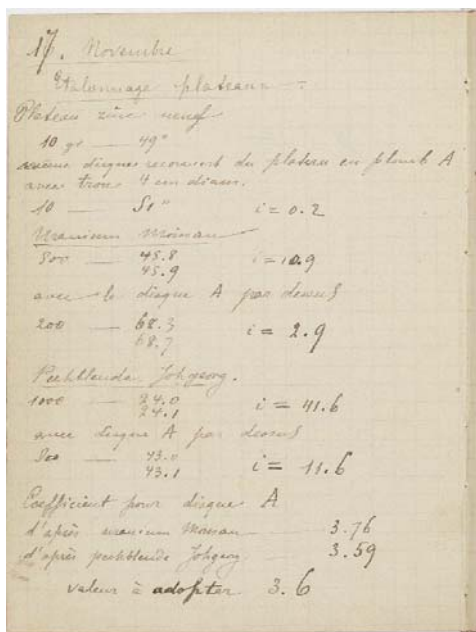 17. Novembre
Etalonnage plateaux
Plateau zinc neuf
10 gr — 49"
disques recouvrant du plateau en plomb A
avec trou 4 cm diam.
10 — 51" i = 0.2
Uranium Moissan
500 — 45.8
45.9 i = 10.9
avec le disque A par dessus
200 — 68.3
68.7 i = 2.9
Pechblende Johgeorg.
1000 — 24.0
24.1 i = 41.6
avec disque A par dessus
500 — 43.0
43.1 i = 11.6
Coefficient pour disque A
d'après uranium Moissan — 3.76
d'après pechblende Johgeorg 3.59
valeur à adopter 3.6